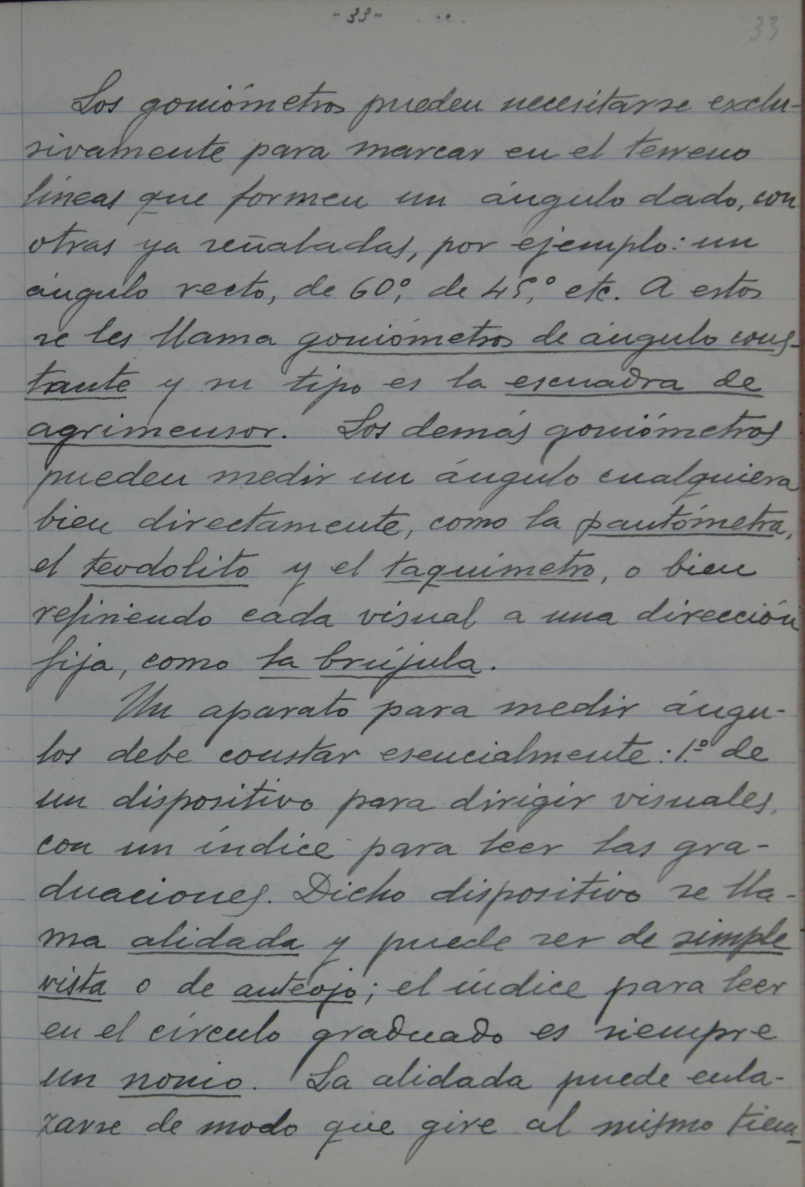 -33-
33
Los goniómetros pueden necesitarse exclu-
sivamente para marcar en el terreno
líneas que formen un ángulo dado, con
otras ya señaladas, por ejemplo: un
ángulo recto, de 60º, de 45º, etc. A estos
se les llama goniómetros de ángulo cons-
tante y su tipo es la escuadra de
agrimensor. Los demás goniómetros
pueden medir un ángulo cualquiera
bien directamente, como la pantómetra,
el teodolito y el taquímetro, o bien
refiriendo cada visual a una dirección
fija, como la brújula.
Un aparato para medir ángu-
los debe constar esencialmente: 1.º de
un dispositivo para dirigir visuales,
con un índice para leer las gra-
duaciones. Dicho dispositivo se lla-
ma alidada y puede ser de simple
vista o de anteojo; el índice para leer
en el círculo graduado es siempre
un nonio. La alidada puede enla-
zarse de modo que gire al mismo tiem-